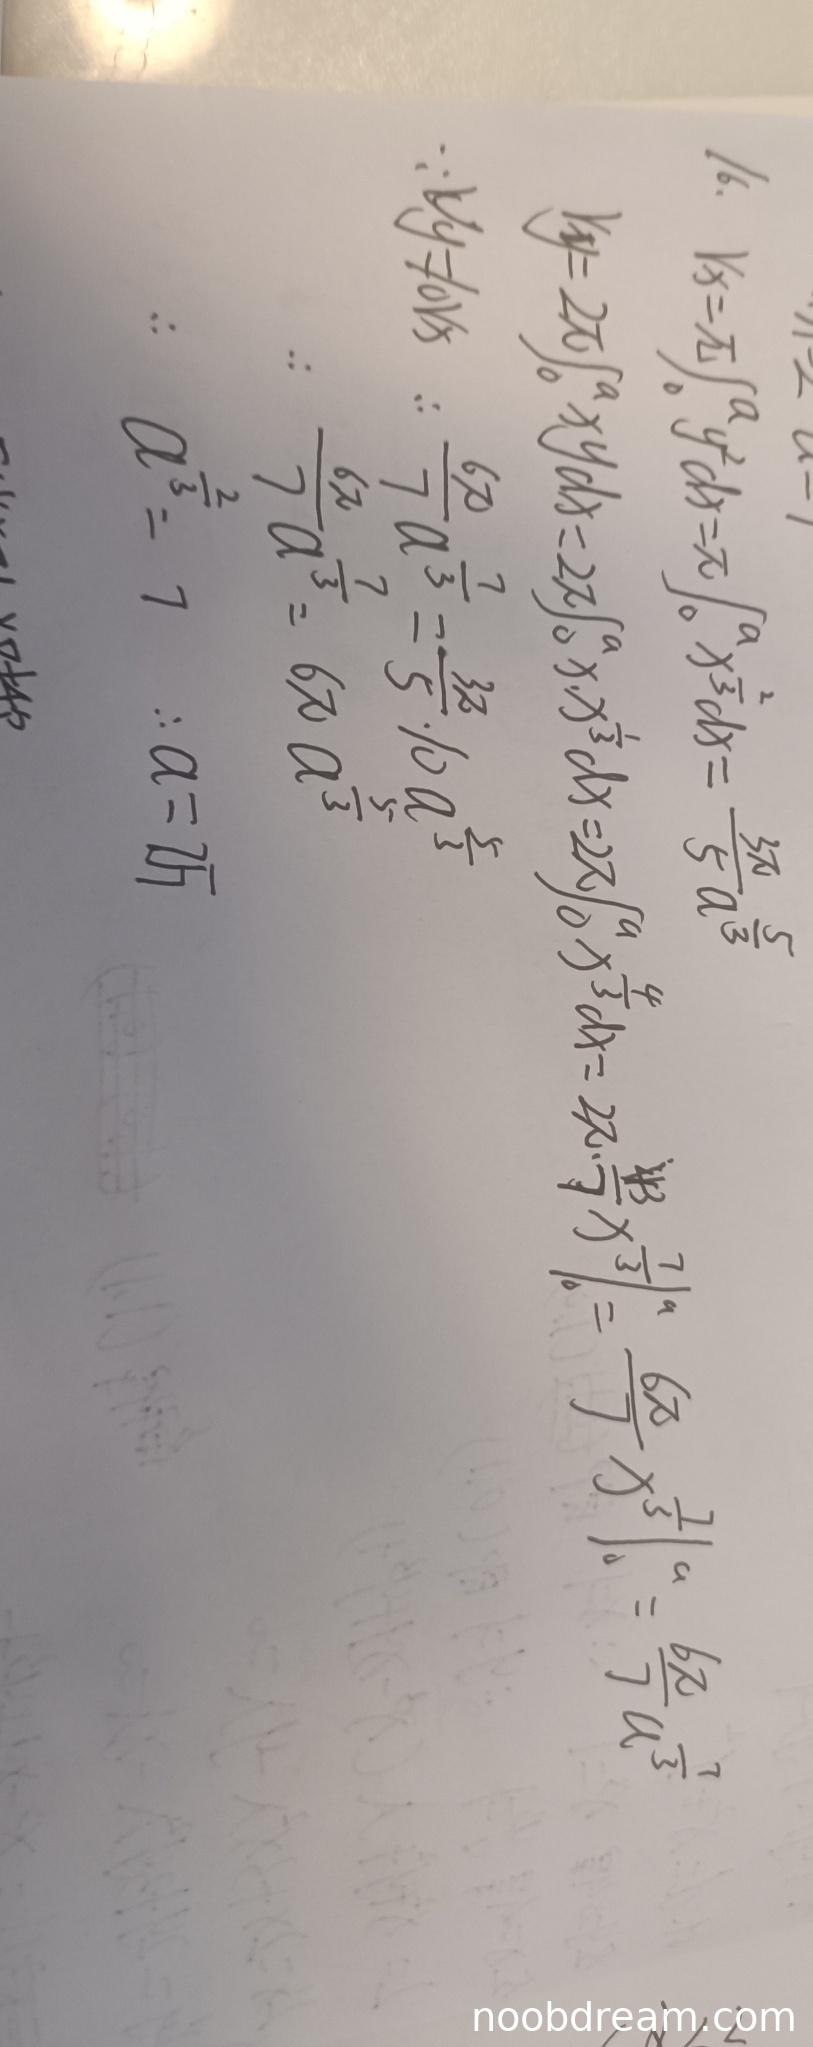 16. Vx = π∫₀ᵃ y²dx = π∫₀ᵃ x^(2/3)dx = 3π/5 a^(5/3)
Vy = 2π∫₀ᵃ xydx = 2π∫₀ᵃ x·x^(1/3)dx = 2π∫₀ᵃ x^(4/3)dx = 2π·3/7 x^(7/3)|₀ᵃ = 6π/7 x^(7/3)|₀ᵃ = 6π/7 a^(7/3)
∵Vy=10Vx ∴ 6π/7 a^(7/3) = 3π/5·10 a^(5/3)
∴ 6π/7 a^(7/3) = 6π a^(5/3)
∴ a^(2/3) = 7 ∴ a = 7√7
noobdream.com